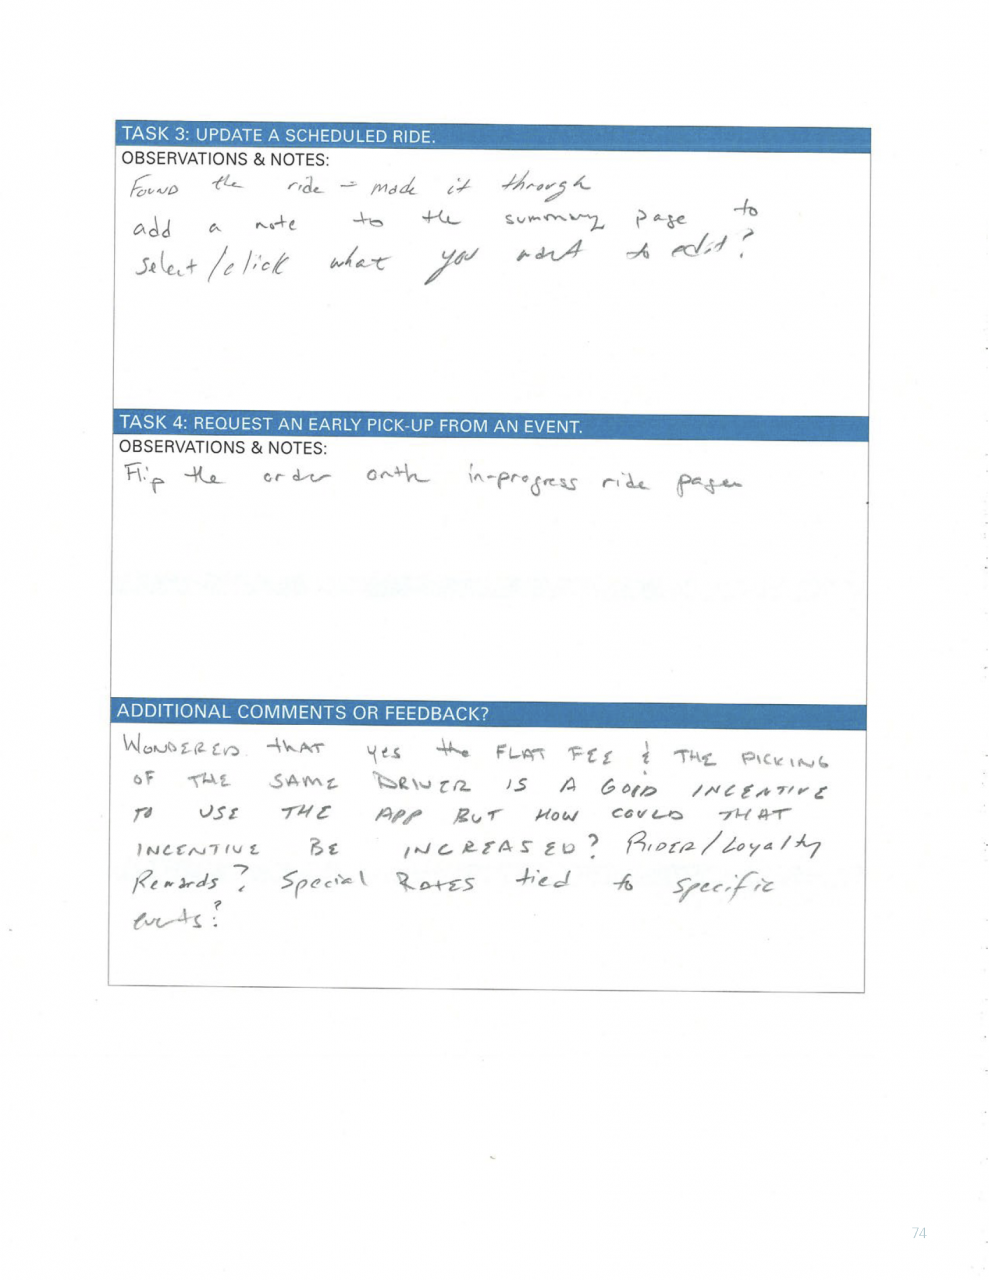 TASK 3: UPDATE A SCHEDULED RIDE.
OBSERVATIONS & NOTES:
Found the ride - made it through
add a note to the summary page to
select/click what you want to edit?
TASK 4: REQUEST AN EARLY PICK-UP FROM AN EVENT.
OBSERVATIONS & NOTES:
Flip the order on the in-progress ride page
ADDITIONAL COMMENTS OR FEEDBACK?
WONDERED that yes the FLAT FEE & THE PICKING
OF THE SAME DRIVER IS A GOOD INCENTIVE
TO USE THE APP BUT HOW COULD THAT
INCENTIVE BE INCREASED? RIDER/Loyalty
Rewards? Special RATES tied to specific
events?
74